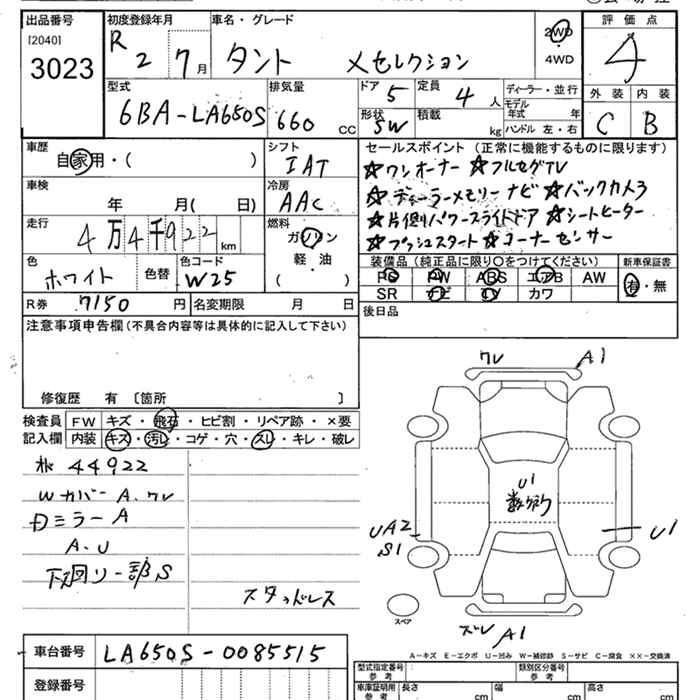 出品番号
[2040]
3023
初度登録年月
R 2 7月
車名・グレード
タント Xセレクション
2WD
・
4WD
評価点
4
型式
6BA-LA650S
排気量
660 CC
ドア 5
定員 4 人
形状 SW
積載 kg
ディーラー・並行
モデル年式 年
ハンドル 左・右
外装 内装
C B
車歴
自家用・( )
シフト
IAT
車検
年 月( 日)
冷房
AAC
走行
4万4千922 km
燃料
ガソリン
軽・油
( )
色
ホワイト
色替
色コード
W25
R券 7150 円
名変期限 月 日
セールスポイント (正常に機能するものに限ります)
☆ワンオーナー ☆フルセグTV
☆ディーラーメモリーナビ ☆バックカメラ
☆片側パワースライドドア ☆シートヒーター
☆プッシュスタート ☆コーナーセンサー
装備品 (純正品に限り○をつけてください)
新車保証書
PS PW ABS エアB AW
SR ナビ TV カワ
有・無
後日品
注意事項申告欄 (不具合内容等は具体的に記入して下さい)
修復歴 有 〔箇所 〕
検査員記入欄
FW キズ・飛石・ヒビ割・リペア跡・×要
内装 キズ・汚レ・コゲ・穴・スレ・キレ・破レ
44922
Wカバー A、ワレ
Dミラー A
A、U
下廻り一部S
スタッドレス
ワレ A1
U1
数ケ所
UA2
S1
U1
スペア
ズレ A1
A−キズ E−エクボ U−凹ミ W−補修跡 S−サビ C−腐食 ××−交換済
車台番号
LA650S-0085515
登録番号
型式指定番号
参考
類別区分番号
参考
車庫証明用
参考
長さ cm
幅 cm
高さ cm